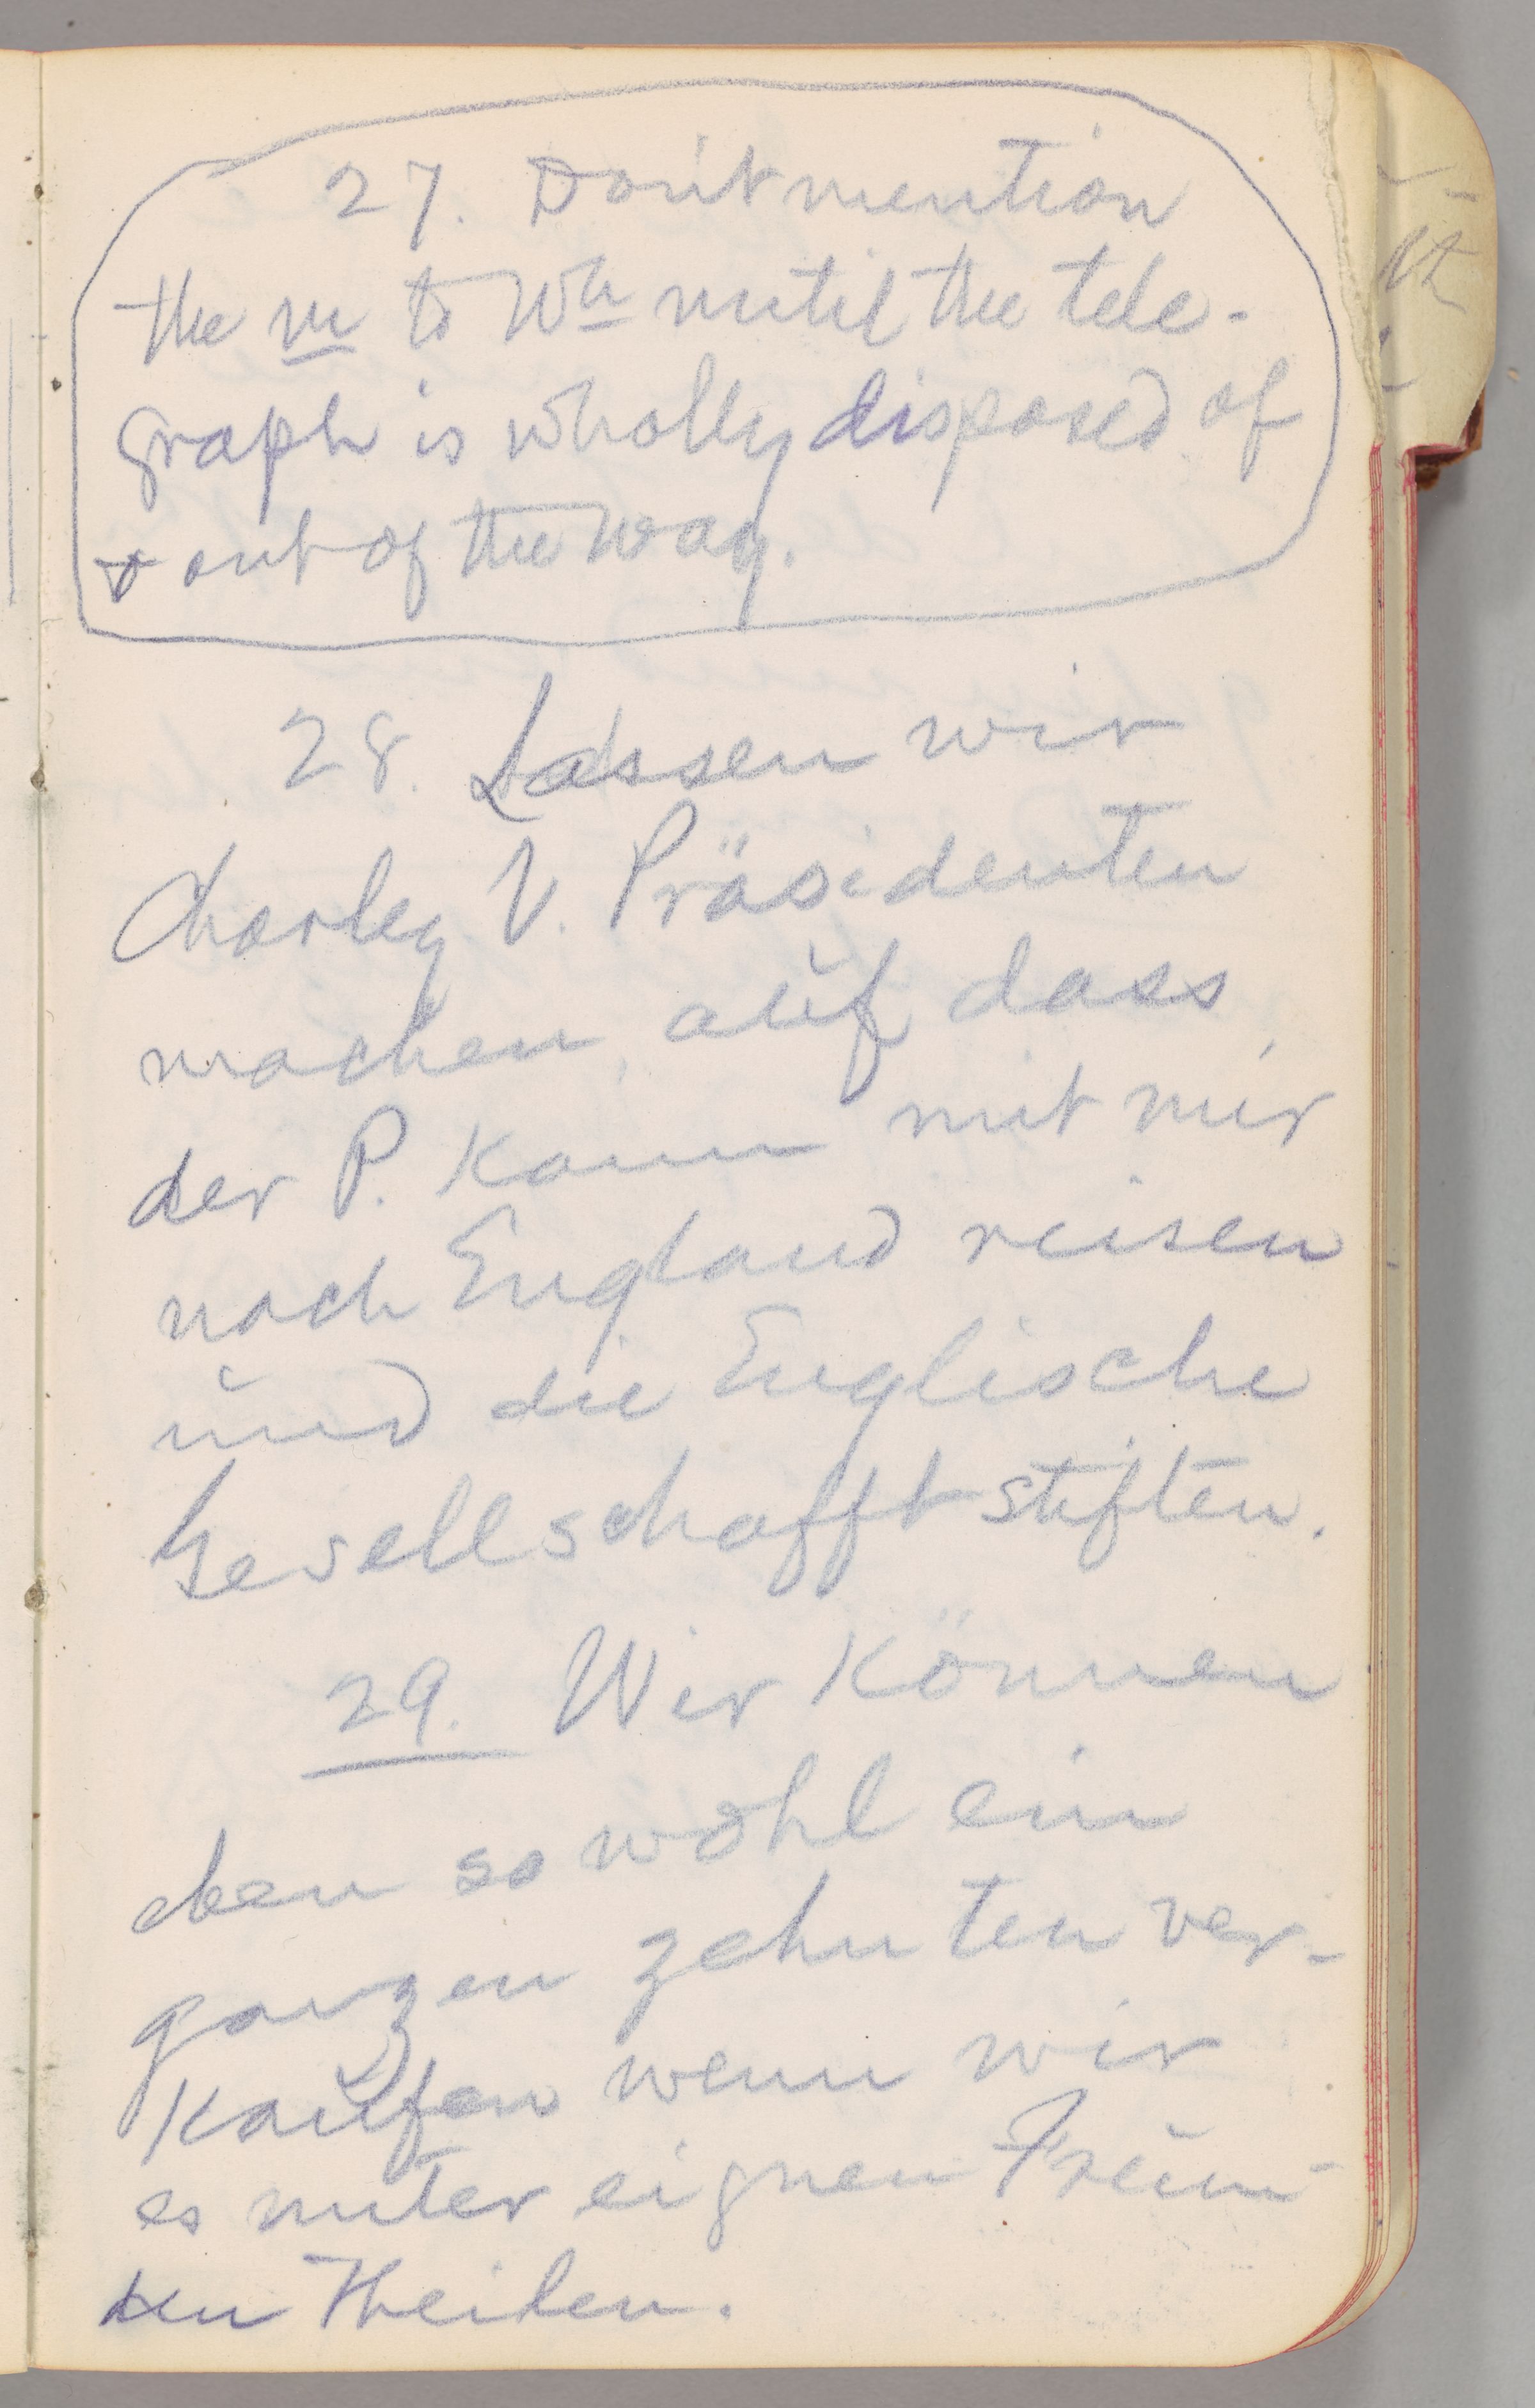 27. Don't mention
the m to Wh until the tele-
graph is wholly disposed of
& out of the way.
28. Lassen wir
Charley V. Präsidenten
machen, auf dass
der P. kann mit mir
nach England reisen
und die Englische
Gesellschafft stiften.
29. Wir können
eben so wohl ein
ganzen zehnten ver-
kaufen wenn wir
es unter eignen Freun-
den Theilen.